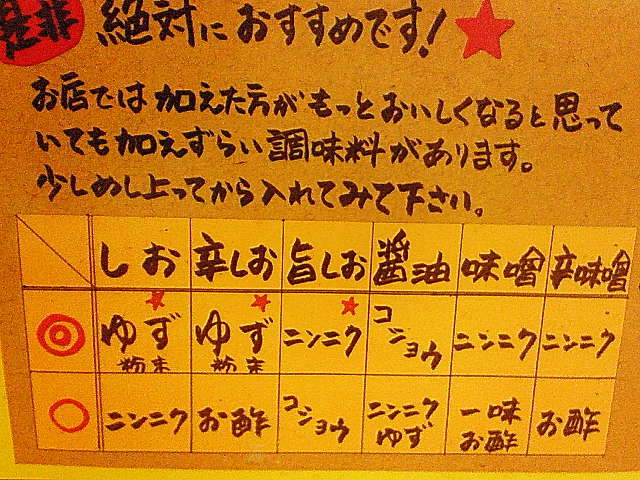 是非 絶対におすすめです!
お店では加えた方がもっとおいしくなると思って
いても加えずらい調味料があります。
少しめし上ってから入れてみて下さい。
しお 辛しお 旨しお 醤油 味噌 辛味噌
◎ ゆず粉末 ゆず粉末 ニンニク コショウ ニンニク ニンニク
○ ニンニク お酢 コショウ ニンニクゆず 一味お酢 お酢